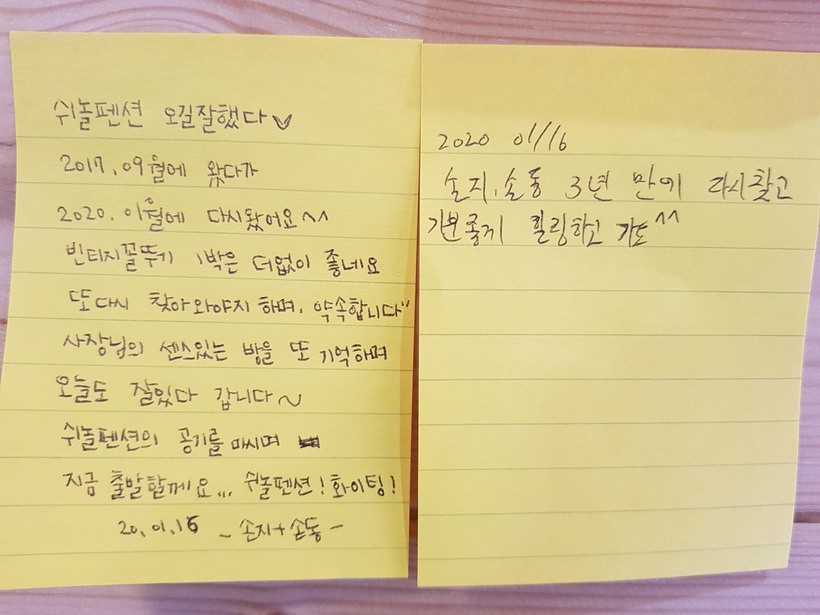 쉬놀펜션 오길잘했다♡
2017.09월에 왔다가
2020.01월에 다시왔어요^^
빈티지꼴뚜기 1박은 더없이 좋네요
또다시 찾아와야지 하며, 약속합니다"
사장님의 센스있는 방을 또 기억하며
오늘도 잘있다 갑니다~
쉬놀펜션의 공기를 마시며
지금 출발할께요... 쉬놀펜션! 화이팅!
20.01.16 - 손지+손동 -
2020 01/16
손지.손동 3년 만에 다시찾고
기분좋게 힐링하고 가도^^